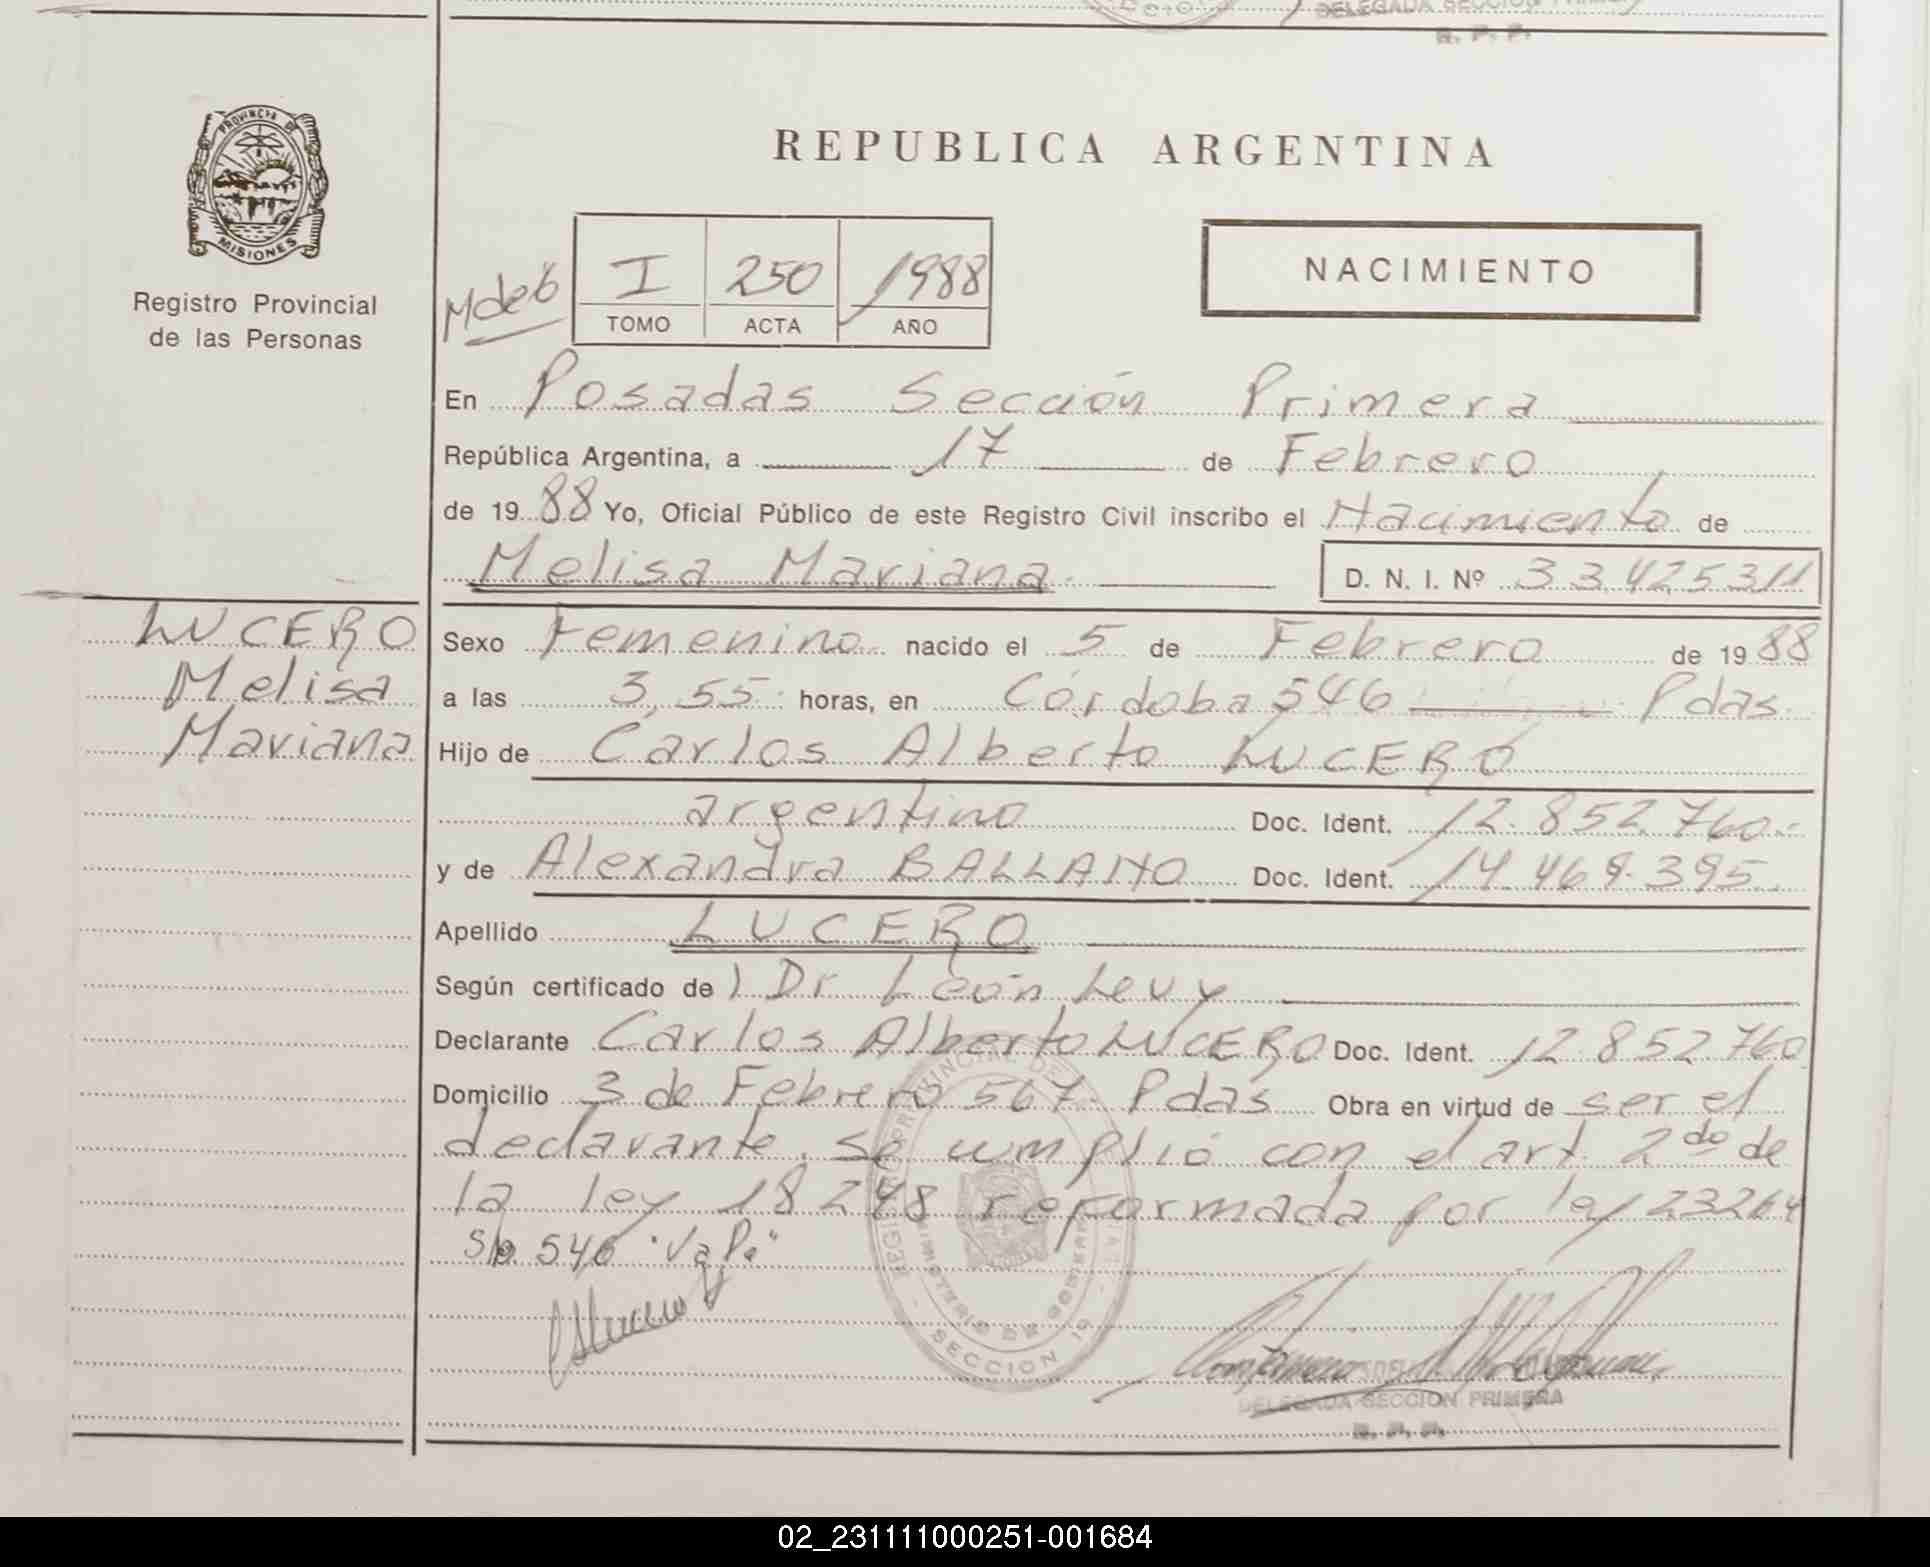 DELEGADA SECCION PRIMERA
R. P. P.
PROVINCIA DE
MISIONES
Registro Provincial
de las Personas
REPUBLICA ARGENTINA
I 250 1988
TOMO ACTA AÑO
NACIMIENTO
En Posadas Sección Primera
República Argentina, a 17 de Febrero
de 1988 Yo, Oficial Público de este Registro Civil inscribo el Nacimiento de
Melisa Mariana D. N. I. Nº 33.425311
LUCERO
Melisa
Mariana
Sexo Femenino nacido el 5 de Febrero de 1988
a las 3,55 horas, en Córdoba 546 Pdas.
Hijo de Carlos Alberto LUCERO
argentino Doc. Ident. 12.852.760.-
y de Alexandra BALLANO Doc. Ident. 14.469.395.
Apellido LUCERO
Según certificado de Dr León Levy
Declarante Carlos Alberto LUCERO Doc. Ident. 12.852.760
Domicilio 3 de Febrero 567. Pdas Obra en virtud de ser el
declarante. Se cumplió con el art. 2do de
la ley 18248 reformada por ley 23264
S/p. 546 "Vale"
SECCION 1ª
DELEGADA SECCION PRIMERA
R. P. P.
02_231111000251-001684